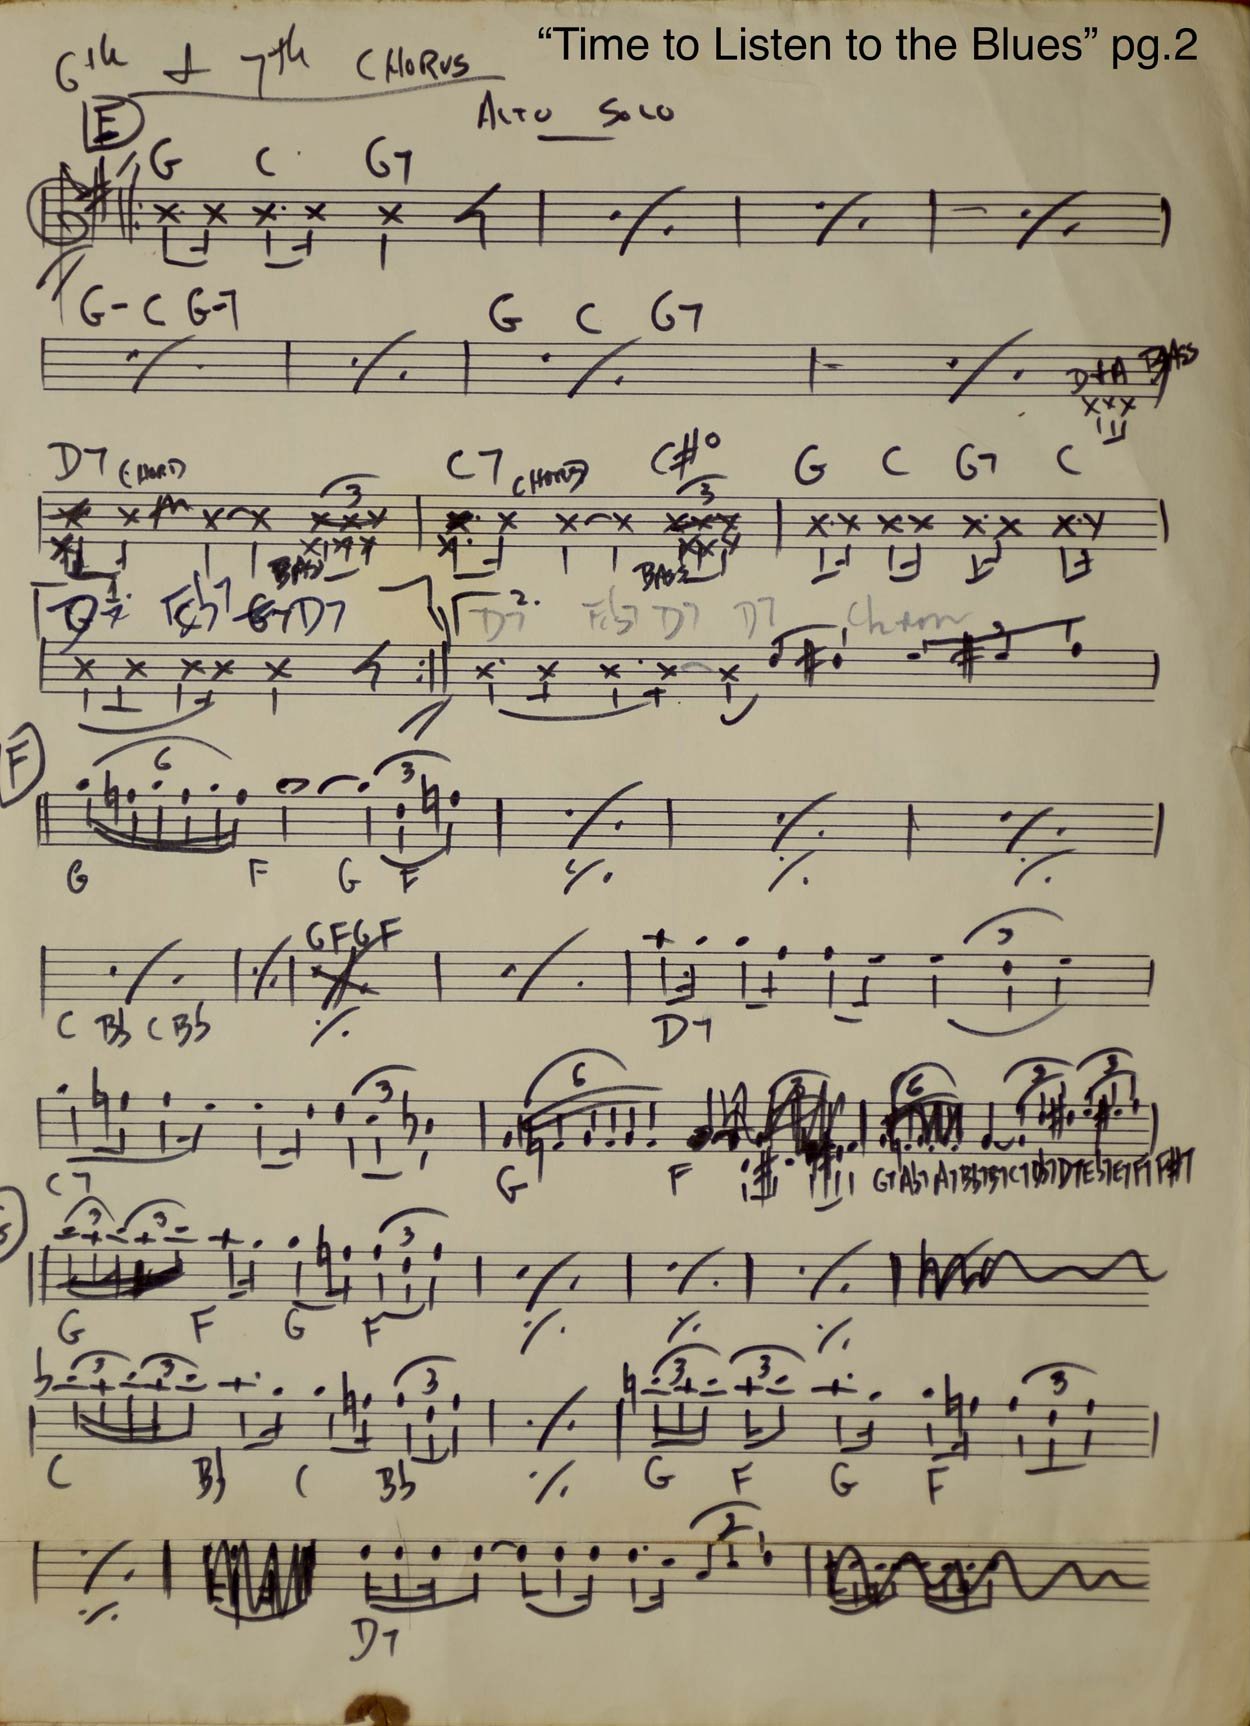 “Time to Listen to the Blues” pg.2
6th + 7th CHORUS
E
ALTO SOLO
G C G7
G- C G-7 G C G7
D+A BASS
D7 (CHORD) C7 (CHORD) C#o G C G7 C
3 3
BASS BASS
1. D7 2. D7 D7 D7 Chrom
3
F
6 3
G F G F
GFGF
3
C Bb C Bb D7
3 6 6 3
C7 G F G7 Ab7 A7 Bb7 B7 C7 Db7 D7 Eb7 E7 F7 F#7
3 3 3
G F G F
3 3 3 3 3 3
C Bb C Bb G F G F
D7